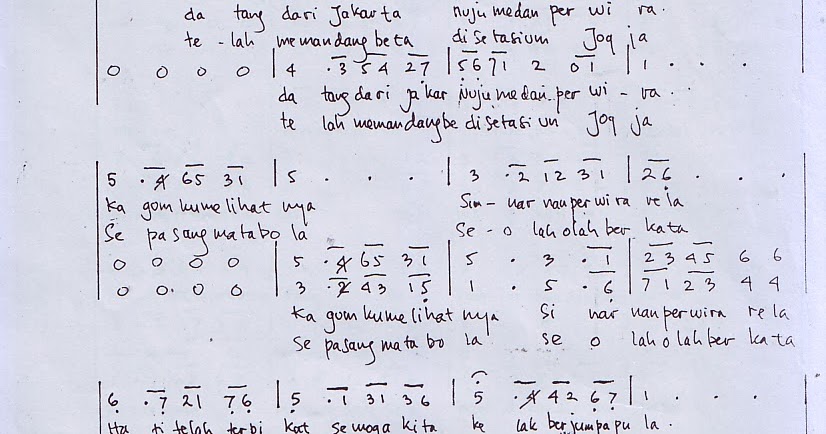 da tang dari Jakarta nuju medan per wi ra.
te - lah memandang beta di setasium Jog ja
0 0 0 0 | 4 . 3 5 4 2 7 | 5 6 7 1 2 0 1 | 1 . . .
da tang dari ja kar nuju medan per wi - ra.
te lah memandang be di setasi un Jog ja
| 5 . 4 6 5 3 1 | 5 . . . | 3 . 2 1 2 3 1 | 2 6 . . .
Ka gum kume lihat nya Sin - nar nan per wi ra re la
Se pa sang mata bo la Se - o lah olah ber kata
0 0 0 0 | 5 . 4 6 5 3 1 | 5 . 3 . 1 | 2 3 4 5 6 6
0 0 . 0 0 | 3 . 2 4 3 1 5 | 1 . 5 . 6 | 7 1 2 3 4 4
Ka gum kume lihat nya Si nar nan per wira re la
Se pasang mata bo la se o lah o lah ber ka ta
| 6 . 7 2 1 7 6 | 5 . 1 3 1 3 6 | 5 . 4 4 2 6 7 | 1 . . .
Ha ti telah ter bi kat se moga kita ke lak berjumpa pu la .